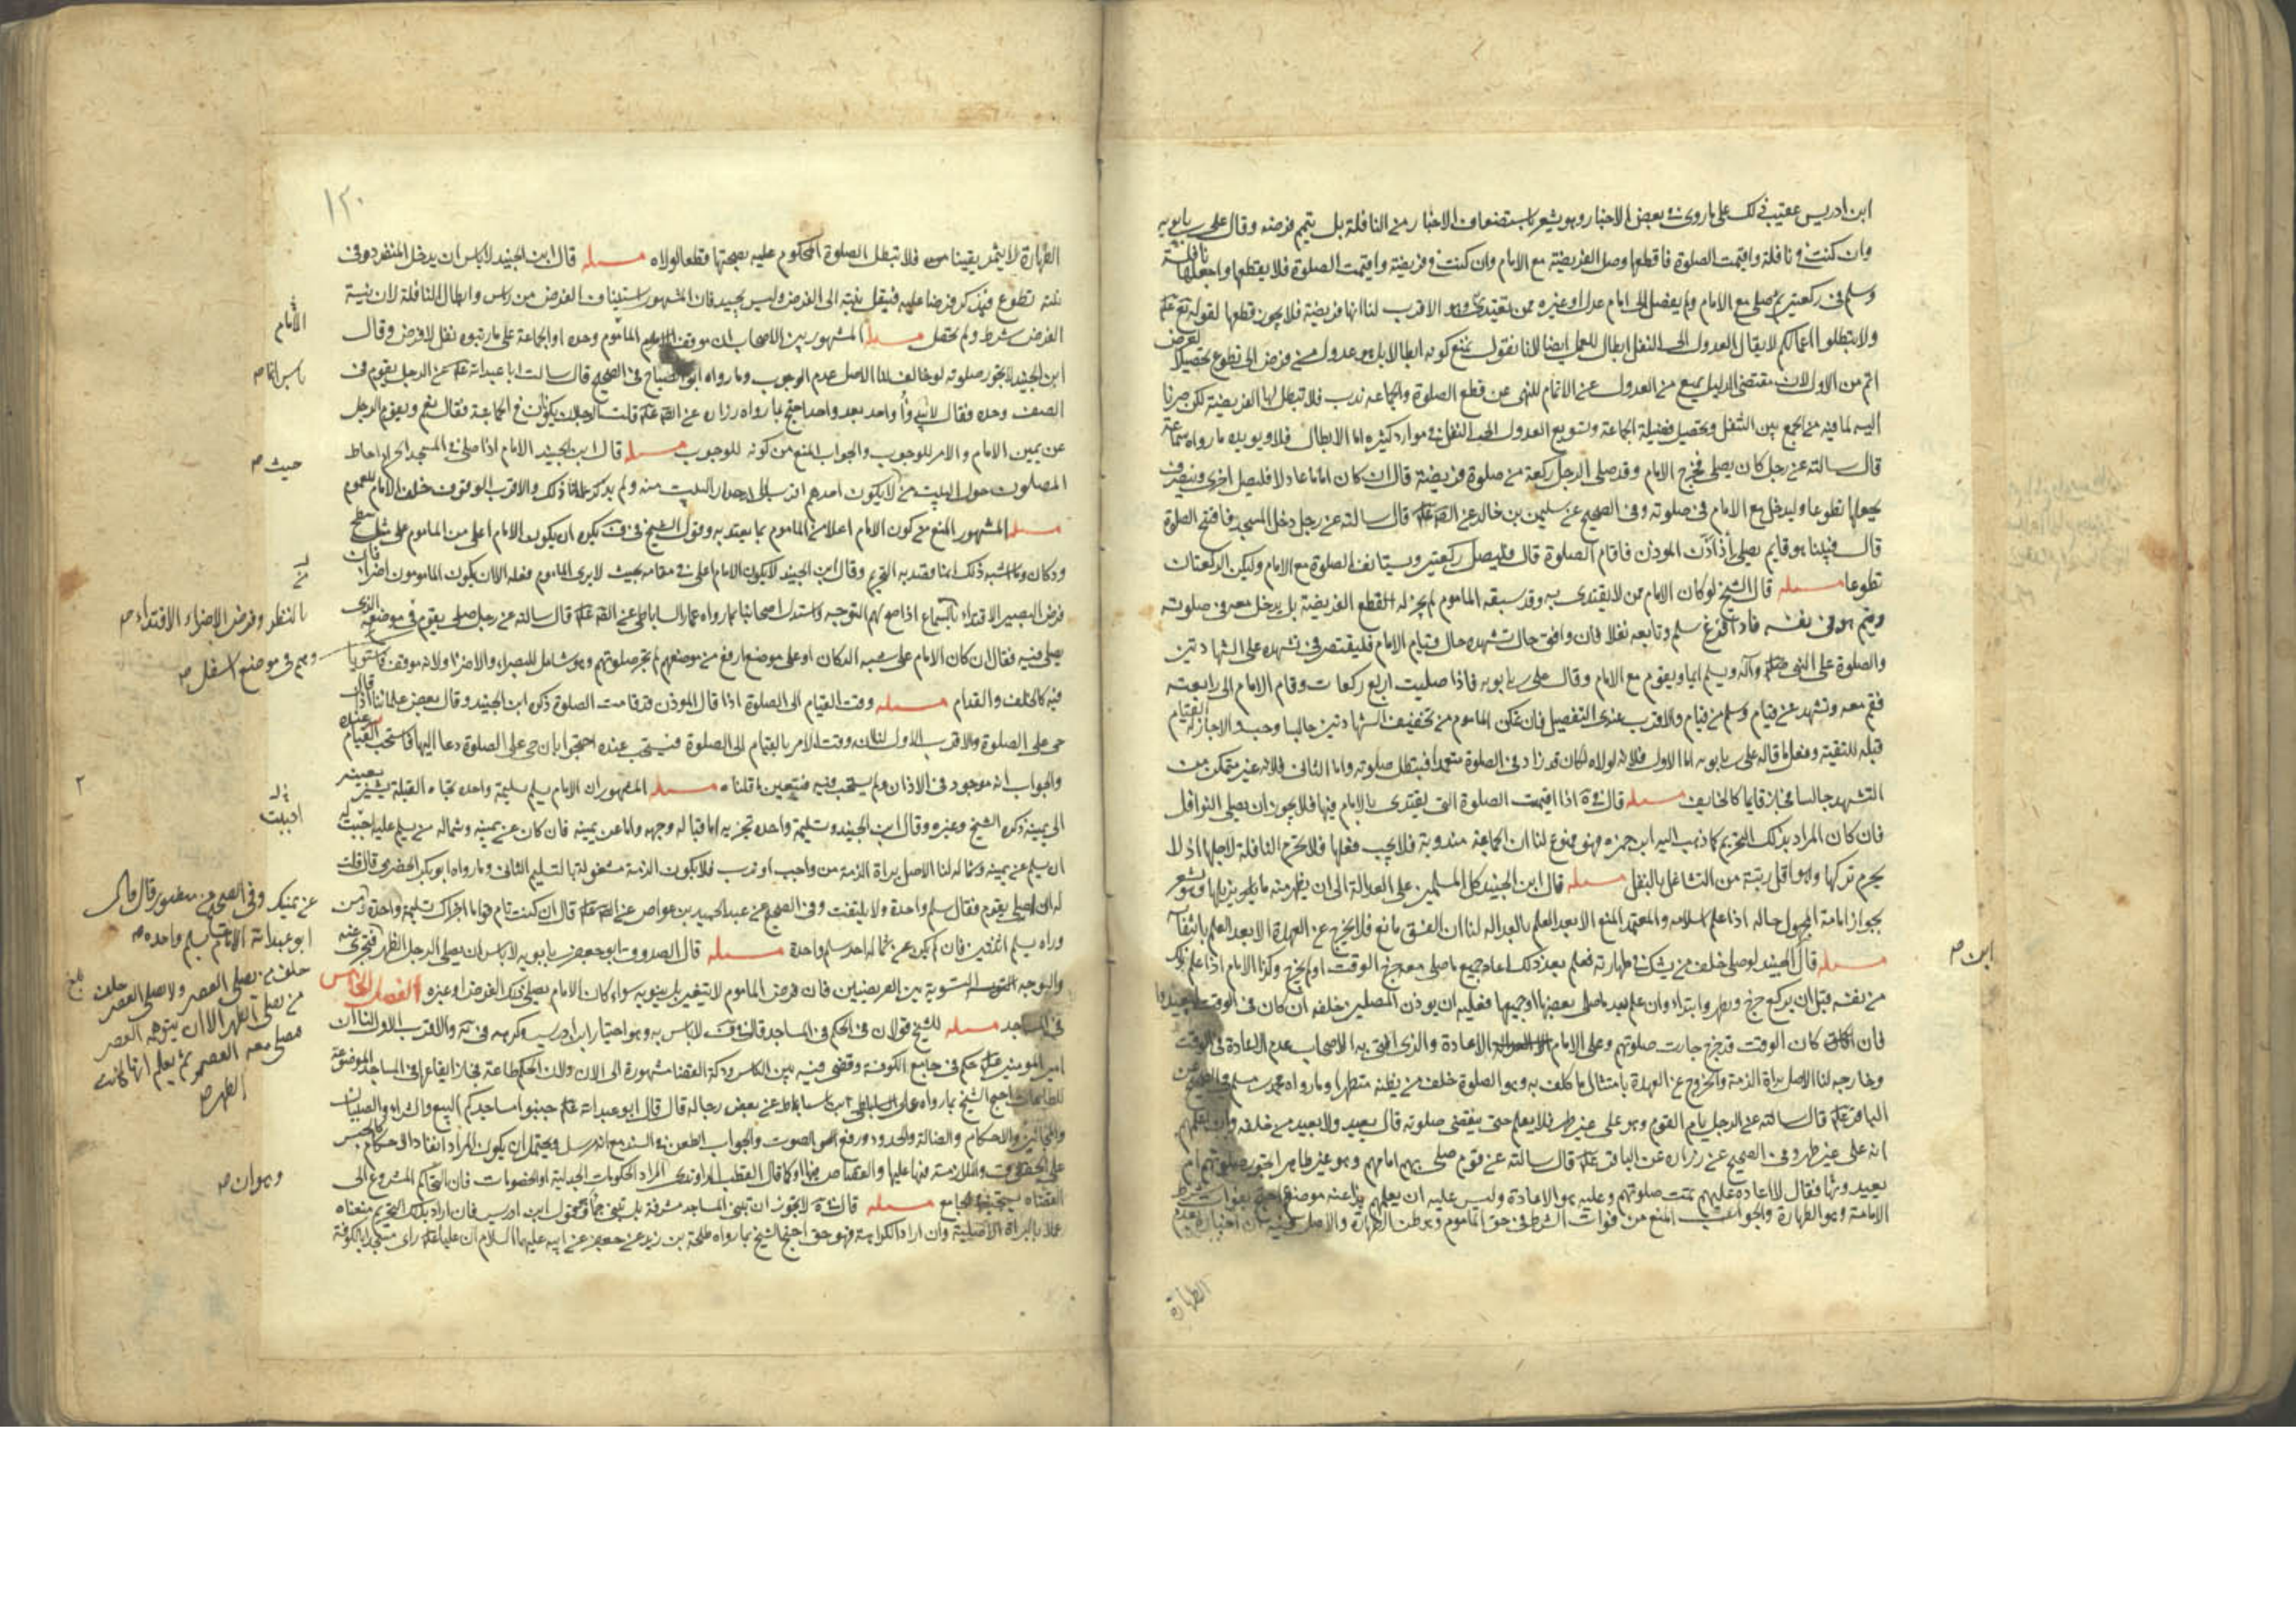 ابن ادريس عقيب ذلك على ما روى في بعض الاخبار وهو يشعر باستضعاف الاخبار من النافلة بل يتم فرضه وقال على بن بابويه
وان كنت في نافلة واقيمت الصلوة فاقطعها وصل الفريضة مع الامام وان كنت في فريضة واقيمت الصلوة فلا يقطعها واجعلها نافلة
وسلم في ركعتين ثم صل مع الامام ولم يفصل الى امام عدل او غيره ممن يقتدى وهو الاقرب لنا انها فريضة فلا يجوز قطعها لقوله تع
ولا تبطلوا اعمالكم لا يقال العدول الى النفل ابطال للعمل ايضا لانا نقول نمنع كونه ابطالا بل هو عدول من فرض الى تطوع تحصيلا لفرض
اتم من الاول لان مقتضى الدليل يمنع من العدول عن الاتمام للنهى عن قطع الصلوة والجماعة ندب فلا تبطل لها الفريضة لكن صرنا
اليه لما فيه من الجمع بين التنفل وتحصيل فضيلة الجماعة وتسويغ العدول الى النفل في موارد كثيرة اما الابطال فلا ويؤيده ما رواه سماعة
قال سالته عن رجل كان يصلى فخرج الامام وقد صلى الرجل ركعة من صلوة فريضة قال ان كان اماما عادلا فليصل اخرى وينصرف
يجعلها تطوعا وليدخل مع الامام في صلوته وفى الصحيح عن سليمن بن خالد عن الصه قال سالته عن رجل دخل المسجد فافتتح الصلوة
قال فبينا هو قايم يصلى اذ اذن الموذن فاقام الصلوة قال فليصل ركعتين ويستانف الصلوة مع الامام وليكن الركعتان
تطوعا مسئله قال الشيخ لو كان الامام ممن لا يقتدى به وقد سبقه الماموم لم يجز له قطع الفريضة بل يدخل معه في صلوته
ويتم هو في نفسه فاذا فرغ سلم وتابعه نفلا فان وافق حال تشهده حال قيام الامام فليقتصر في تشهده على الشهادتين
والصلوة على النبى وآله ويسلم ايماء ويقوم مع الامام وقال على بن بابويه فاذا صليت اربع ركعات وقام الامام الى رابعته
فقم معه وتشهد عن قيام وسلم من قيام والاقرب عندى التفصيل فان تمكن الماموم من تخفيف الشهادتين جالسا وجب والا جاز له القيام
قبله للتقية وفعل ما قاله على بن بابويه اما الاول فلانه لولاه لكان قد زاد في الصلوة متعمدا فيبطل صلوته واما الثانى فلانه غير متمكن من
التشهد جالسا فجاز قايما كالخايف مسئله قال اذا اقيمت الصلوة التى يقتدى بالامام فيها فلا يجوز ان يصلى النوافل
فان كان المراد بذلك التحريم كما ذهب اليه ابن حمزه فهو ممنوع لنا ان الجماعة مندوبة فلا يجب فعلها فلا تحرم النافلة لاجلها اذ لا
يحرم تركها ولا اقل رتبة من التشاغل بالنفل مسئله قال ابن الجنيد كل المسلمين على العدالة الى ان يظهر منه ما يزيلها وهو يشعر
بجواز امامة المجهول حاله اذا علم اسلامه والمعتمد المنع الا بعد العلم بالعدالة لنا ان الفسق مانع فلا يخرج عن العهدة الا بعد العلم بانتفائه
مسئله قال الجنيد لو صلى خلف من يشك في طهارته فعلم بعد ذلك اعاد جميع ما صلى معه خرج الوقت او لم يخرج وكذا الامام اذا علم ذلك
ابن صح
من نفسه قبل ان يركع خرج وتطهر وابتداء وان علم بعد ما صلى بعضها او جميعها فعليه ان يوذن المصلين خلفه ان كان في الوقت
فان كان الوقت قد خرج جازت صلوتهم وعلى الامام الاعادة والذى افتى به الاصحاب عدم الاعادة في الوقت
وخارجه لنا الاصل براة الذمة والخروج عن العهدة بامتثال ما كلف به وهو الصلوة خلف من يظنه متطهرا وما رواه محمد بن مسلم
الباقر قال سالته عن الرجل يام القوم وهو على غير طهر فلا يعلم حتى ينقضى صلوته قال يعيد ولا يعيد من خلفه وان اعلمهم
انه على غير طهر وفى الصحيح عن زرارة عن الباقر قال سالته عن قوم صلى بهم امامهم وهو غير طاهر اتجوز صلوتهم ام
يعيدونها فقال لا اعادة عليهم تمت صلوتهم وعليه هو الاعادة وليس عليه ان يعلمهم هذا عنه موضوع احتج بفوات شرط
الامامة وهو الطهارة والجواب المنع من فوات الشرط في حق الماموم وهو ظن الطهارة والاصل فيه
الطهارة
١٢٠
الطهارة لا يثمر يقينا فلا تبطل الصلوة المحكوم عليه بصحتها قطعا لولاه مسئله قال ابن الجنيد لا باس ان يدخل المنفرد وفى
نيته تطوع فيذكر فرضا عليه فينقل نيته الى الفرض وليس بجيد فان المشهور استيناف الفرض من راس وابطال النافلة لان نية
الفرض شرط ولم تحصل مسئله المشهور بين الاصحاب ان موقف الماموم وحده او الجماعة على ما رتبوه نفل لا فرض وقال
الامام
ابن الجنيد لا يجوز صلوته لو خالف لنا الاصل عدم الوجوب وما رواه ابو الصباح في الصحيح قال سالت ابا عبد الله عن الرجل يقوم في
الصف وحده فقال لا باس انما واحد بعد واحد احتج بما رواه زرارة عن قلت الرجلان يكونان في الجماعة فقال نعم ويقوم الرجل
عن يمين الامام والامر للوجوب والجواب المنع من كونه للوجوب مسئله قال ابن الجنيد الامام اذا صلى في المسجد الحرام احاط
حيث صح
المصلون حول البيت من لا يكون احدهم اقرب الى جدار البيت منه ولم يذكر علماؤنا ذلك والاقرب الوقوف خلف الامام للعموم
مسئله المشهور المنع من كون الامام اعلا من الماموم بما يعتد به وقول الشيخ في ف يكره ان يكون الامام اعلى من الماموم على مثل سطح
ودكان وما اشبه ذلك انما وقصد به التحريم وقال ابن الجنيد لا يكون الامام اعلى في مقامه بحيث لا يرى الماموم فعله الا ان يكون المامومون اضراء فان
فرض البصير الاقتداء بالسماع اذا صح لهم التوجه واستدل اصحابنا بما رواه عمار الساباطى عن قال سالته عن رجل صلى بقوم في موضعه الذى
بالنظر وفرض الاضراء الاقتداء صح
يصلى فيه فقال ان كان الامام على شبه الدكان او على موضع ارفع من موضعهم لم تجز صلوتهم وهو شامل للبصراء والاضراء ولانه موقف
وهم في موضع اسفل صح
فيه كالخلف والقدام مسئله وقت القيام الى الصلوة اذا قال الموذن قد قامت الصلوة ذكره ابن الجنيد وقال بعض علمائنا اذا قال
حى على الصلوة والاقرب الاول لنا ان وقت الامر بالقيام الى الصلوة فيستحب عنده احتجوا بان حى على الصلوة دعا اليها فاستحب القيام عنده
والجواب انه موجود في الاذان ولم يستحب فيه فيتعين ما قلناه مسئله المشهور ان الامام يسلم تسليمة واحدة تجاه القبلة يشير بعينه
الى يمينه ذكره الشيخ وغيره وقال ابن الجنيد وتسليمة واحدة تجزيه اما قبالة وجهه واما عن يمينه فان كان عن يمينه وشماله من يسلم عليه احببت له
ان يسلم عن يمينه وشماله لنا الاصل براة الذمة من واجب او ندب فلا يكون الذمة مشغولة بالتسليم الثانى وما رواه ابو بكر الحضرمى قال قلت
له انى اصلى بقوم فقال سلم واحدة ولا يلتفت وفى الصحيح عن عبد الحميد بن عواض عن قال ان كنت تام قوما اجزاك تسليمة واحدة
عن يمينك وفى الصحيح عن منصور قال قال
ابو عبد الله الامام يسلم واحدة
وراه يسلم اثنتين فان لم يكن عن شماله احد سلم واحدة مسئله قال الصدوق ابو جعفر بن بابويه لا باس ان يصلى الرجل الظهر
خلف من يصلى العصر ولا يصلى العصر خلف
من يصلى الظهر الا ان يتوهمه العصر
فيصلى معه العصر ثم يعلم انها كانت
الظهر صح
والوجه التسوية بين الفريضتين فان فرض الماموم لا يتغير بل ينويه سواء كان الامام يصلى ذلك الفرض او غيره الفصل الخامس
في المساجد مسئله للشيخ قولان في الحكم في المساجد قال في ف لا باس به وهو اختيار ابن ادريس وكرهه في يه والاقرب الاول لنا ان
امير المومنين حكم في جامع الكوفة وقضى فيه بين الناس ودكة القضا مشهورة الى الان ولان الحكم طاعة فجاز ايقاعها في المساجد الموضوعة
للطاعات احتج الشيخ بما رواه على بن اسباط عن بعض رجاله قال قال ابو عبد الله جنبوا مساجدكم البيع والشراء والصبيان
والمجانين والاحكام والضالة والحدود ورفع الصوت والجواب الطعن في السند مع انه مرسل ويحتمل ان يكون المراد انفاذ الاحكام كالحبس
على الحقوق والملازمة فيها عليها والقصاص فيها او كما قال القطب الراوندى المراد الحكومات الجدلية او الخصومات فان التحاكم المشروع الى
وهو ان صح
القضاة يستحب الجامع مسئله قال لا يجوز ان تبنى المساجد مشرفة بل تبنى جما وهو قول ابن ادريس فان اراد بذلك التحريم منعناه
عملا بالبراة الاصلية وان اراد الكراهية فهو حق احتج الشيخ بما رواه طلحة بن زيد عن جعفر عن ابيه عليهما السلام ان عليا راى مسجدا بالكوفة